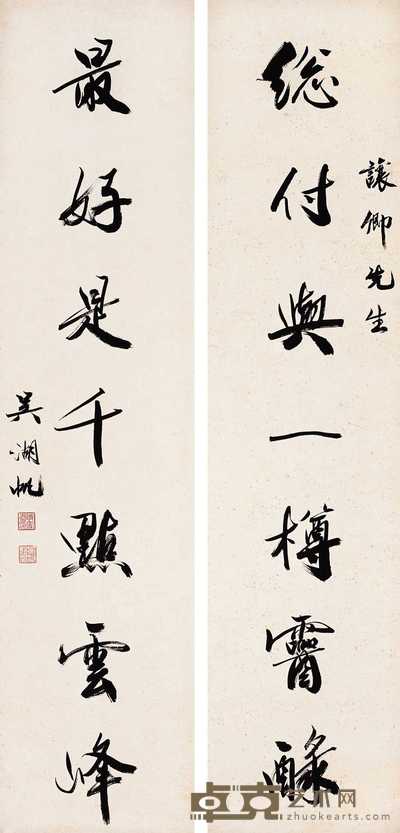 讓卿先生
總付與一樽醽醁
最好是千點雲峰
吳湖帆
卓克艺术网
zhuokearts.com